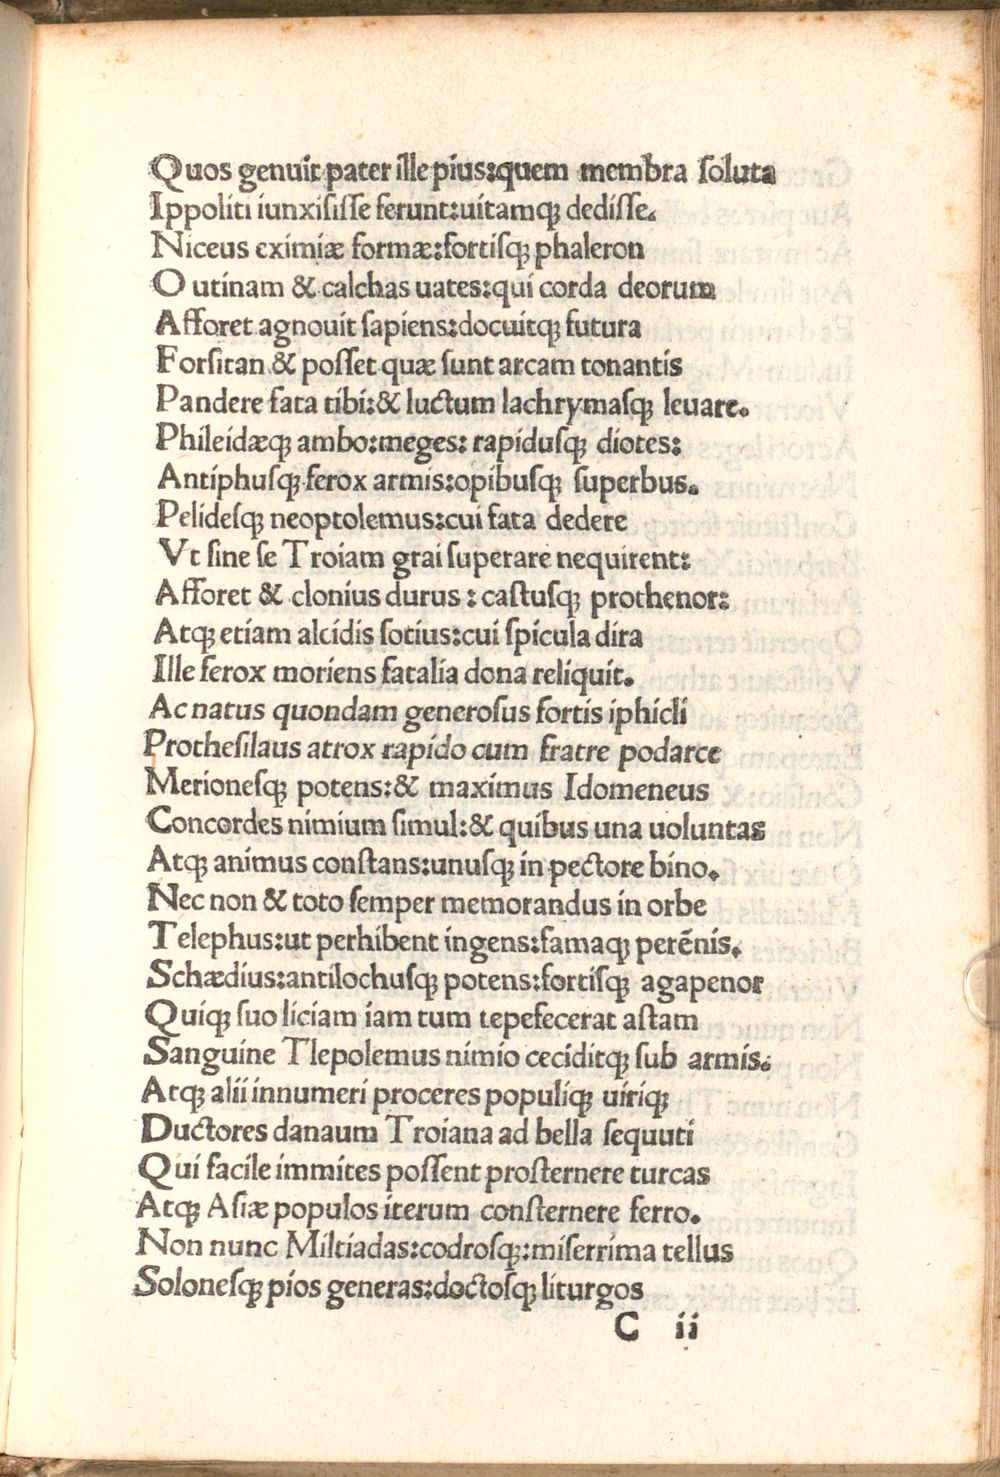 Quos genuit pater ille pius:quem membra soluta
Ippoliti iunxisisse ferunt:uitamqꝫ dedisse.
Niceus eximiæ formæ:fortisqꝫ phaleron
O utinam & calchas uates:qui corda deorum
Afforet agnouit sapiens:docuitqꝫ futura
Forsitan & posset quæ sunt arcam tonantis
Pandere fata tibi:& luctum lachrymasqꝫ leuare.
Phileidæqꝫ ambo:meges: rapidusqꝫ diotes:
Antiphusqꝫ ferox armis:opibusqꝫ superbus.
Pelidesqꝫ neoptolemus:cui fata dedere
Vt sine se Troiam grai superare nequirent:
Afforet & clonius durus : castusqꝫ prothenor:
Atqꝫ etiam alcidis sotius:cui spicula dira
Ille ferox moriens fatalia dona reliquit.
Ac natus quondam generosus fortis iphicli
Prothesilaus atrox rapido cum fratre podarce
Merionesqꝫ potens:& maximus Idomeneus
Concordes nimium simul:& quibus una uoluntas
Atqꝫ animus constans:unusqꝫ in pectore bino.
Nec non & toto semper memorandus in orbe
Telephus:ut perhibent ingens:famaqꝫ perēnis.
Schædius:antilochusqꝫ potens:fortisqꝫ agapenor
Quiqꝫ suo liciam iam tum tepefecerat astam
Sanguine Tlepolemus nimio ceciditqꝫ sub armis.
Atqꝫ alii innumeri proceres populiqꝫ uiriqꝫ
Ductores danaum Troiana ad bella sequuti
Qui facile immites possent prosternere turcas
Atqꝫ Asiæ populos iterum consternere ferro.
Non nunc Miltiadas:codrosqꝫ:miserrima tellus
Solonesqꝫ pios generas:doctosqꝫ liturgos
C ii